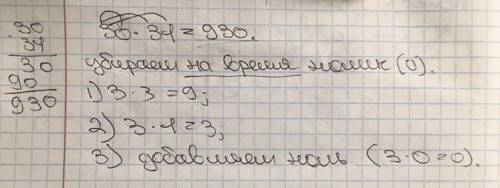 30
31
30
90
930
30 · 31 = 930.
убираем на время нолик (0).
1) 3 · 3 = 9;
2) 3 · 1 = 3;
3) добавляем ноль (3 · 0 = 0).